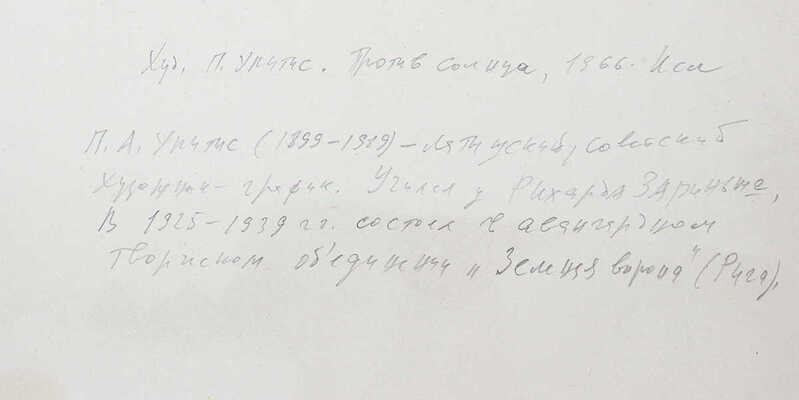 Худ. П. Упитис. Против солнца, 1966.
П. А. Упитис (1899-1989) - латышский, советский
художник-график. Учился у Рихарда Зариньша,
В 1925-1939 гг. состоял в авангардном
творческом объединении „Зеленая ворона" (Рига).